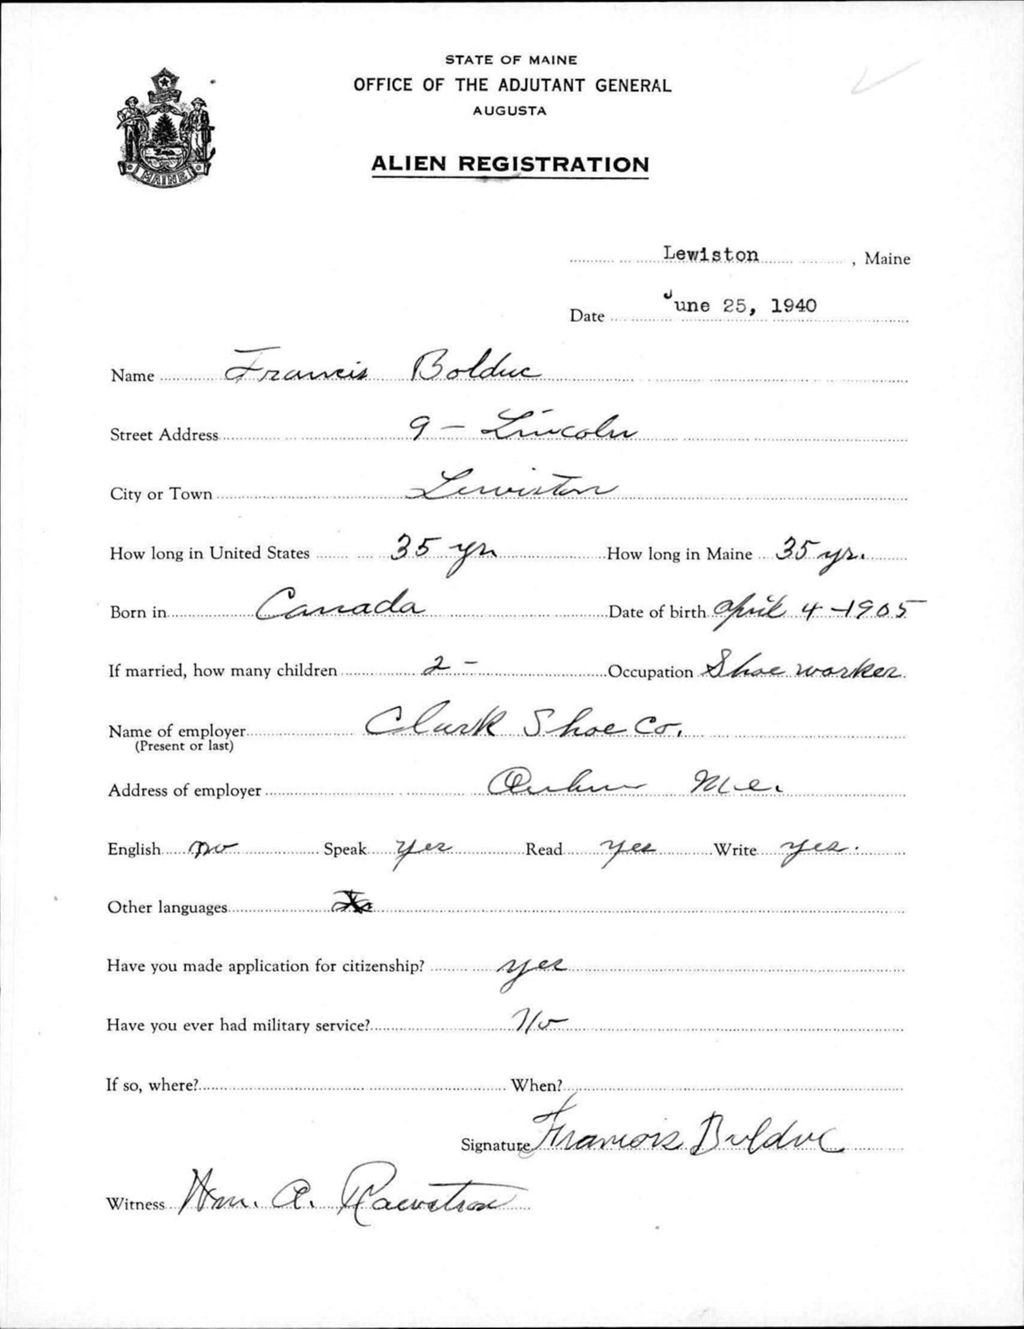 STATE OF MAINE
OFFICE OF THE ADJUTANT GENERAL
AUGUSTA
ALIEN REGISTRATION
MAINE
Lewiston, Maine
Date June 25, 1940
Name Francis Bolduc
Street Address 9 - Lincoln
City or Town Lewiston
How long in United States 35 yrs How long in Maine 35 yr.
Born in Canada Date of birth April 4 - 1905
If married, how many children 2 - Occupation Shoe worker
Name of employer Clark Shoe Co.
(Present or last)
Address of employer Auburn Me.
English no Speak yes Read yes Write yes.
Other languages
Have you made application for citizenship? yes
Have you ever had military service? No
If so, where? When?
Signature Francois Bolduc
Witness Wm. A.